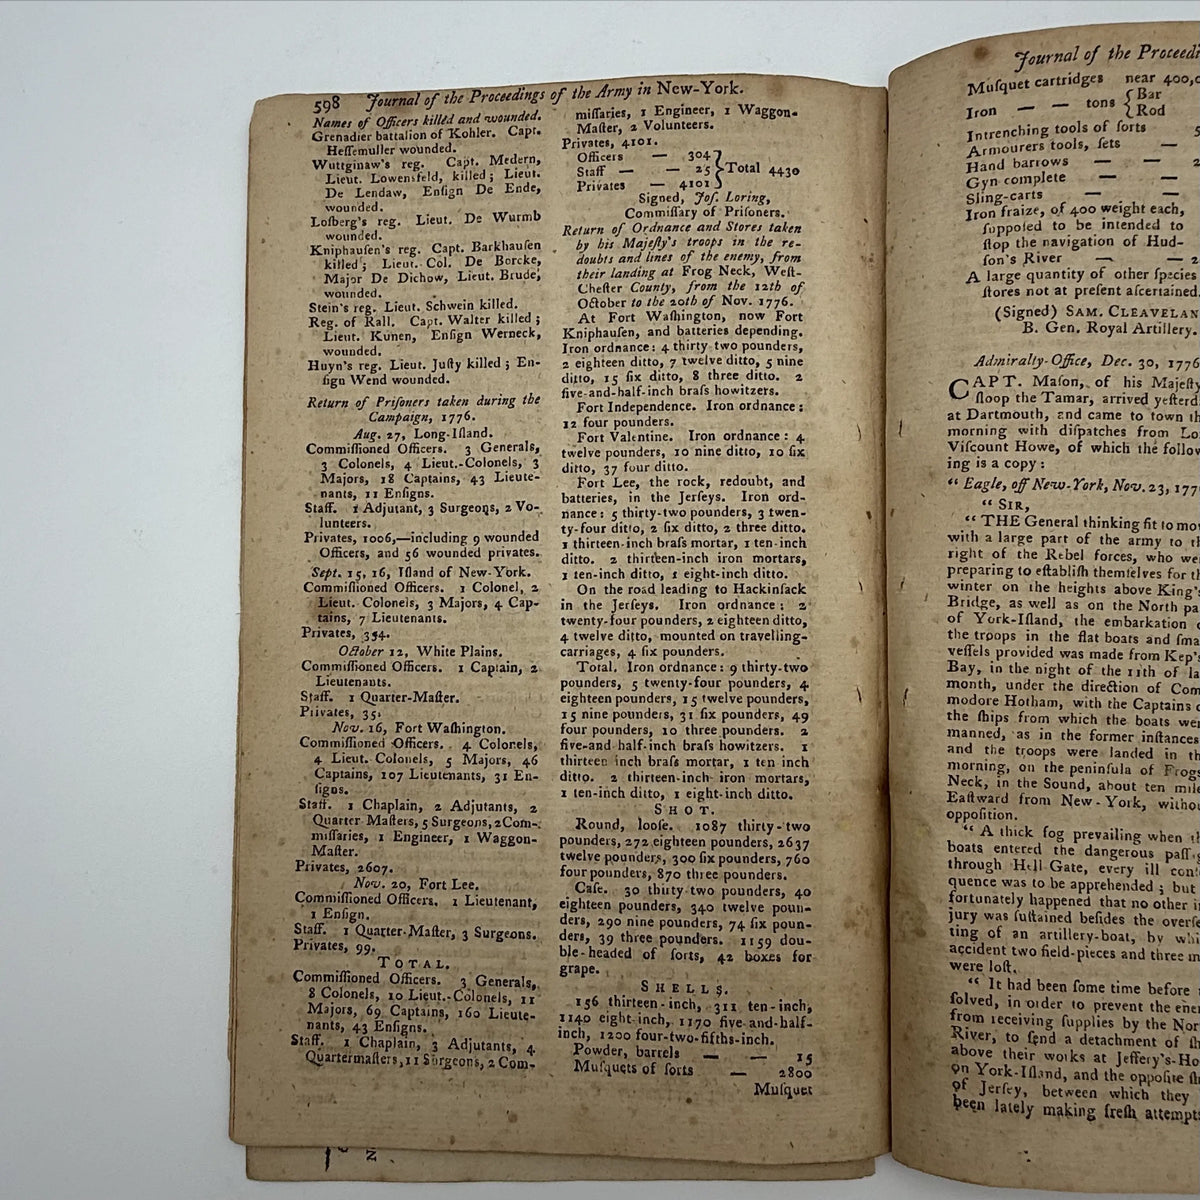 598 Journal of the Proceedings of the Army in New-York.
Names of Officers killed and wounded.
Grenadier battalion of Kohler. Capt.
Heſſemuller wounded.
Wuttginaw's reg. Capt. Medern,
Lieut. Lowensfeld, killed; Lieut.
De Lendaw, Enſign De Ende,
wounded.
Losberg's reg. Lieut. De Wurmb
wounded.
Kniphauſen's reg. Capt. Barkhauſen
killed; Lieut. Col. De Borcke,
Major De Dichow, Lieut. Brude,
wounded.
Stein's reg. Lieut. Schwein killed.
Reg. of Rall. Capt. Walter killed;
Lieut. Kunen, Enſign Werneck,
wounded.
Huyn's reg. Lieut. Juſty killed; En-
ſign Wend wounded.
Return of Priſoners taken during the
Campaign, 1776.
Aug. 27, Long-Iſland.
Commiſſioned Officers. 3 Generals,
3 Colonels, 4 Lieut.-Colonels, 3
Majors, 18 Captains, 43 Lieute-
nants, 11 Enſigns.
Staff. 1 Adjutant, 3 Surgeons, 2 Vo-
lunteers.
Privates, 1006,—including 9 wounded
Officers, and 56 wounded privates.
Sept. 15, 16, Iſland of New-York.
Commiſſioned Officers. 1 Colonel, 2
Lieut. Colonels, 3 Majors, 4 Cap-
tains, 7 Lieutenants.
Privates, 354.
October 12, White Plains.
Commiſſioned Officers. 1 Captain, 2
Lieutenants.
Staff. 1 Quarter-Maſter.
Privates, 35.
Nov. 16, Fort Waſhington.
Commiſſioned Officers. 4 Colonels,
4 Lieut. Colonels, 5 Majors, 46
Captains, 107 Lieutenants, 31 En-
ſigns.
Staff. 1 Chaplain, 2 Adjutants, 2
Quarter Maſters, 5 Surgeons, 2 Com-
miſſaries, 1 Engineer, 1 Waggon-
Maſter.
Privates, 2607.
Nov. 20, Fort Lee.
Commiſſioned Officers. 1 Lieutenant,
1 Enſign.
Staff. 1 Quarter-Maſter, 3 Surgeons.
Privates, 99.
TOTAL.
Commiſſioned Officers. 3 Generals,
8 Colonels, 10 Lieut.-Colonels, 11
Majors, 69 Captains, 160 Lieute-
nants, 43 Enſigns.
Staff. 1 Chaplain, 3 Adjutants, 4
Quartermaſters, 11 Surgeons, 2 Com-
miſſaries, 1 Engineer, 1 Waggon-
Maſter, 2 Volunteers.
Privates, 4101.
Officers — 304
Staff — — 25 } Total 4430
Privates — 4101
Signed, Joſ. Loring,
Commiſſary of Priſoners.
Return of Ordnance and Stores taken
by his Majeſty's troops in the re-
doubts and lines of the enemy, from
their landing at Frog Neck, Weſt-
Cheſter County, from the 12th of
October to the 20th of Nov. 1776.
At Fort Waſhington, now Fort
Kniphauſen, and batteries depending.
Iron ordnance: 4 thirty two pounders,
2 eighteen ditto, 7 twelve ditto, 5 nine
ditto, 15 ſix ditto, 8 three ditto. 2
five-and-half-inch braſs howitzers.
Fort Independence. Iron ordnance:
12 four pounders.
Fort Valentine. Iron ordnance: 4
twelve pounders, 10 nine ditto, 10 ſix
ditto, 37 four ditto.
Fort Lee, the rock, redoubt, and
batteries, in the Jerſeys. Iron ord-
nance: 5 thirty-two pounders, 3 twen-
ty-four ditto, 2 ſix ditto, 2 three ditto.
1 thirteen-inch braſs mortar, 1 ten-inch
ditto. 2 thirteen-inch iron mortars,
1 ten-inch ditto, 1 eight-inch ditto.
On the road leading to Hackinſack
in the Jerſeys. Iron ordnance: 2
twenty-four pounders, 2 eighteen ditto,
4 twelve ditto, mounted on travelling-
carriages, 4 ſix pounders.
Total. Iron ordnance: 9 thirty-two
pounders, 5 twenty-four pounders, 4
eighteen pounders, 15 twelve pounders,
15 nine pounders, 31 ſix pounders, 49
four pounders, 10 three pounders. 2
five-and half-inch braſs howitzers. 1
thirteen inch braſs mortar, 1 ten inch
ditto. 2 thirteen-inch iron mortars,
1 ten-inch ditto, 1 eight-inch ditto.
SHOT.
Round, looſe. 1087 thirty-two
pounders, 272 eighteen pounders, 2637
twelve pounders, 300 ſix pounders, 760
four pounders, 870 three pounders.
Caſe. 30 thirty two pounders, 40
eighteen pounders, 340 twelve poun-
ders, 290 nine pounders, 74 ſix poun-
ders, 39 three pounders. 1159 dou-
ble-headed of ſorts, 42 boxes for
grape.
SHELLS.
156 thirteen-inch, 311 ten-inch,
1140 eight-inch, 1170 five-and-half-
inch, 1200 four-two-fifths-inch.
Powder, barrels — — 15
Muſquets of ſorts — 2800
Muſquet
Journal of the Proceedi
Muſquet cartridges near 400,0
Iron — — tons { Bar
Rod
Intrenching tools of ſorts 5
Armourers tools, ſets —
Hand barrows — — 2
Gyn complete — —
Sling-carts — —
Iron fraize, of 400 weight each,
ſuppoſed to be intended to
ſtop the navigation of Hud-
ſon's River — — 2
A large quantity of other ſpecies
ſtores not at preſent aſcertained.
(Signed) SAM. CLEAVELAN
B. Gen. Royal Artillery.
Admiralty-Office, Dec. 30, 1776
CAPT. Maſon, of his Majeſty
ſloop the Tamar, arrived yeſterd
at Dartmouth, and came to town th
morning with diſpatches from Lo
Viſcount Howe, of which the follow
ing is a copy:
“ Eagle, off New-York, Nov. 23, 177
“ SIR,
“ THE General thinking fit to mov
with a large part of the army to th
right of the Rebel forces, who we
preparing to eſtabliſh themſelves for th
winter on the heights above King's
Bridge, as well as on the North pa
of York-Iſland, the embarkation o
the troops in the flat boats and ſma
veſſels provided was made from Kep's
Bay, in the night of the 11th of la
month, under the direction of Com
modore Hotham, with the Captains o
the ſhips from which the boats wer
manned, as in the former inſtances
and the troops were landed in th
morning, on the peninſula of Frogs
Neck, in the Sound, about ten mile
Eaſtward from New-York, withou
oppoſition.
“ A thick fog prevailing when th
boats entered the dangerous paſſag
through Hell Gate, every ill conſe
quence was to be apprehended; but
fortunately happened that no other in
jury was ſuſtained beſides the overſe
ting of an artillery-boat, by whi
accident two field-pieces and three m
were loſt.
“ It had been ſome time before r
ſolved, in order to prevent the ene
from receiving ſupplies by the Nor
River, to ſend a detachment of ſh
above their works at Jeffery's-Ho
on York-Iſland, and the oppoſite ſh
of Jerſey, between which they
been lately making freſh attempts